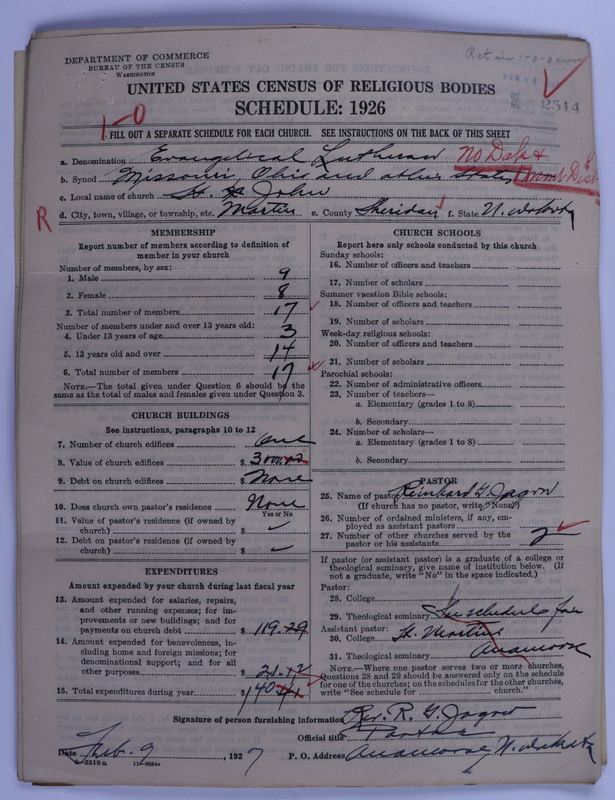 DEPARTMENT OF COMMERCE
BUREAU OF THE CENSUS
WASHINGTON
FEB 14
2514
UNITED STATES CENSUS OF RELIGIOUS BODIES
SCHEDULE: 1926
1-0
FILL OUT A SEPARATE SCHEDULE FOR EACH CHURCH. SEE INSTRUCTIONS ON THE BACK OF THIS SHEET
a. Denomination Evangelical Lutheran No Dak &
b. Synod Missouri, Ohio and other States Mont Dist
c. Local name of church St. John
R d. City, town, village, or township, etc. Martin e. County Sheridan f. State N. Dakota
MEMBERSHIP
Report number of members according to definition of member in your church
Number of members, by sex:
1. Male 9
2. Female 8
3. Total number of members 17
Number of members under and over 13 years old:
4. Under 13 years of age 3
5. 13 years old and over 14
6. Total number of members 17
NOTE.—The total given under Question 6 should be the same as the total of males and females given under Question 3.
CHURCH BUILDINGS
See instructions, paragraphs 10 to 12
7. Number of church edifices one
8. Value of church edifices $ 3000.00
9. Debt on church edifices $ None
10. Does church own pastor's residence None
Yes or No
11. Value of pastor's residence (if owned by church) $
12. Debt on pastor's residence (if owned by church) $
EXPENDITURES
Amount expended by your church during last fiscal year
13. Amount expended for salaries, repairs, and other running expenses; for improvements or new buildings; and for payments on church debt $ 119.29
14. Amount expended for benevolences, including home and foreign missions; for denominational support; and for all other purposes $ 21.12
15. Total expenditures during year $ 140.41
CHURCH SCHOOLS
Report here only schools conducted by this church
Sunday schools:
16. Number of officers and teachers
17. Number of scholars
Summer vacation Bible schools:
18. Number of officers and teachers
19. Number of scholars
Week-day religious schools:
20. Number of officers and teachers
21. Number of scholars
Parochial schools:
22. Number of administrative officers
23. Number of teachers—
a. Elementary (grades 1 to 8)
b. Secondary
24. Number of scholars—
a. Elementary (grades 1 to 8)
b. Secondary
PASTOR
25. Name of pastor Reinhard G. Jagow
(If church has no pastor, write "None")
26. Number of ordained ministers, if any, employed as assistant pastors
27. Number of other churches served by the pastor or his assistants 2
If pastor (or assistant pastor) is a graduate of a college or theological seminary, give name of institution below. (If not a graduate, write "No" in the space indicated.)
Pastor:
28. College
29. Theological seminary See schedule for
Assistant pastor:
30. College St. Martins
31. Theological seminary Anamoose
NOTE.—Where one pastor serves two or more churches, Questions 28 and 29 should be answered only on the schedule for one of the churches; on the schedules for the other churches, write "See schedule for church."
Signature of person furnishing information Rev. R. G. Jagow
Official title Pastor
Date Feb. 9, 1927 P. O. Address Anamoose, N. Dakota